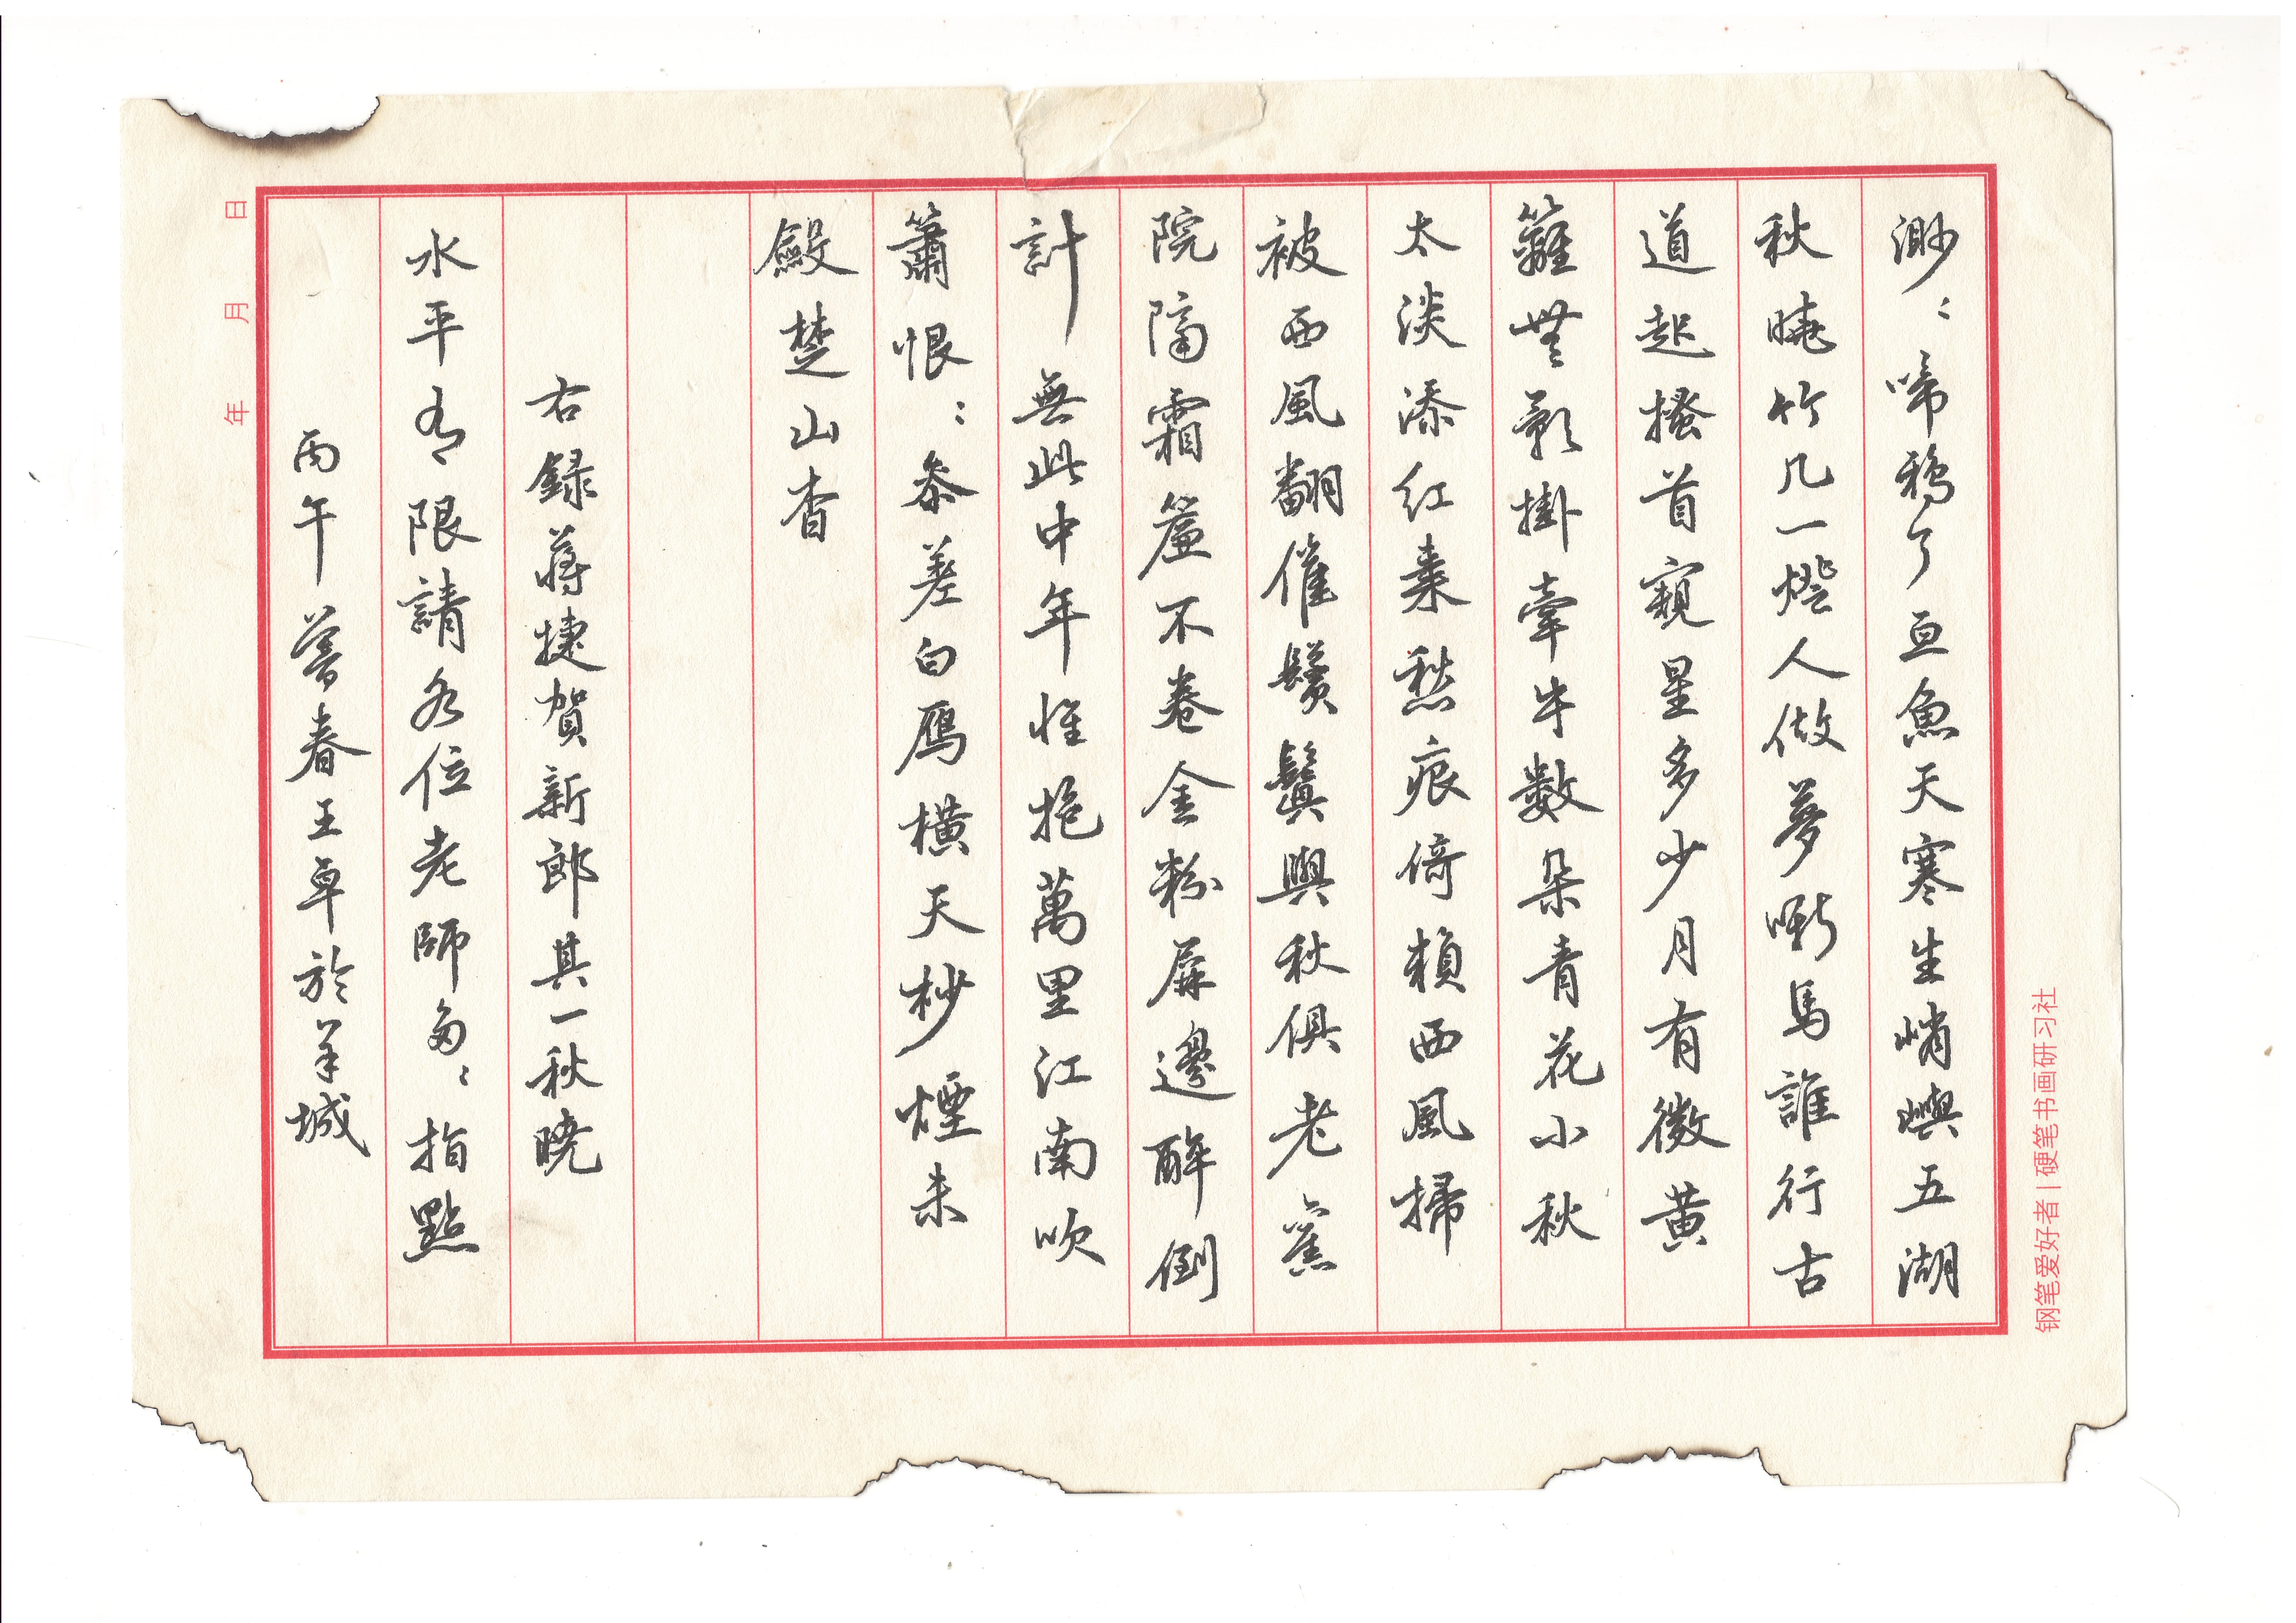 渺〻啼鴉了亘魚天寒生峭嶼五湖
秋曉竹几一燈人做夢嘶馬誰行古
道起搔首窺星多少月有微黄
籬無影掛牽牛數朵青花小秋
太淡添紅棗愁痕倚賴西風掃
被西風翻催鬢鬒與秋俱老舊
院隔霜簾不卷金粉屏邊醉倒
計無此中年惟抱萬里江南吹
簫恨〻參差白雁橫天杪煙未
斂楚山杳
右録蔣捷賀新郎其一秋曉
水平有限請各位老師多〻指點
丙午暮春王卓於羊城
年 月 日
钢笔爱好者|硬笔书画研习社